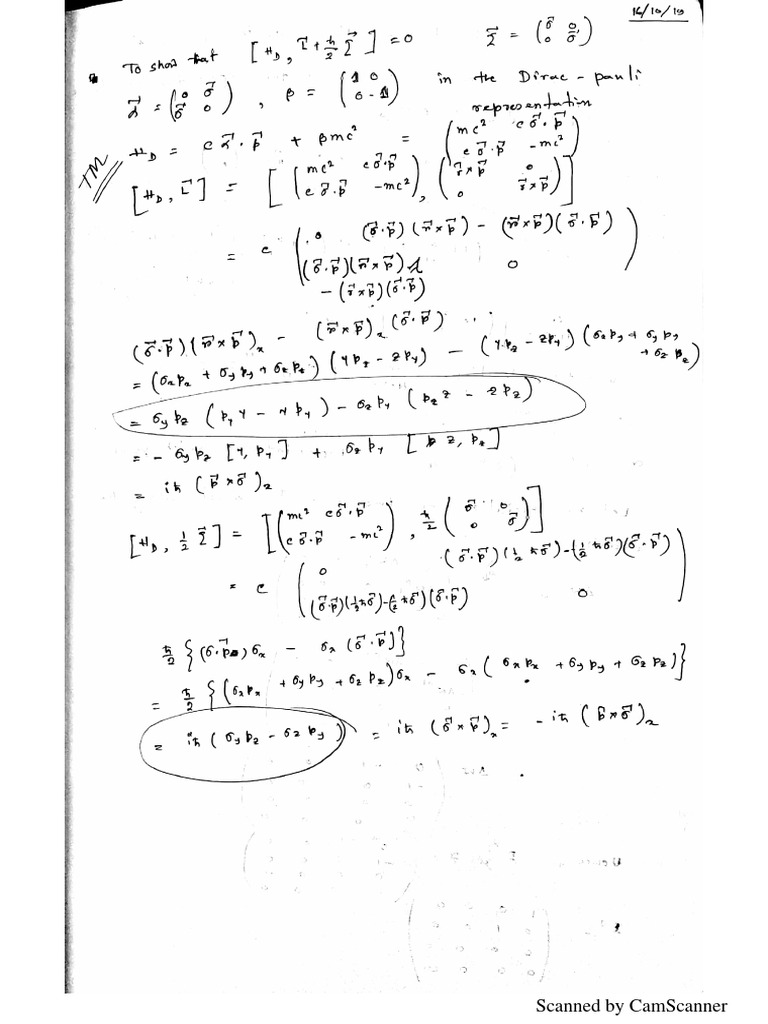 16/10/19
To show that [H_D, L⃗ + ħ/2 Σ⃗] = 0 Σ⃗ = (σ⃗ 0 / 0 σ⃗)
α⃗ = (0 σ⃗ / σ⃗ 0), β = (1 0 / 0 -1) in the Dirac-pauli representation
H_D = c α⃗·p⃗ + βmc² = (mc² cσ⃗·p⃗ / cσ⃗·p⃗ -mc²)
TM
[H_D, L⃗] = [(mc² cσ⃗·p⃗ / cσ⃗·p⃗ -mc²), (r⃗×p⃗ 0 / 0 r⃗×p⃗)]
= c (0 (σ⃗·p⃗)(r⃗×p⃗) - (r⃗×p⃗)(σ⃗·p⃗) / (σ⃗·p⃗)(r⃗×p⃗) - (r⃗×p⃗)(σ⃗·p⃗) 0)
(σ⃗·p⃗)(r⃗×p⃗)_x - (r⃗×p⃗)_x (σ⃗·p⃗)
= (σ_x p_x + σ_y p_y + σ_z p_z)(y p_z - z p_y) - (y p_z - z p_y)(σ_x p_x + σ_y p_y + σ_z p_z)
= σ_y p_z (p_y y - y p_y) - σ_z p_y (p_z z - z p_z)
= - σ_y p_z [y, p_y] + σ_z p_y [z, p_z]
= iħ (p⃗ × σ⃗)_x
[H_D, 1/2 Σ⃗] = [(mc² cσ⃗·p⃗ / cσ⃗·p⃗ -mc²), ħ/2 (σ⃗ 0 / 0 σ⃗)]
= c (0 (σ⃗·p⃗)(1/2 ħσ⃗) - (1/2 ħσ⃗)(σ⃗·p⃗) / (σ⃗·p⃗)(1/2 ħσ⃗) - (1/2 ħσ⃗)(σ⃗·p⃗) 0)
ħ/2 {(σ⃗·p⃗)σ_x - σ_x (σ⃗·p⃗)}
= ħ/2 {(σ_x p_x + σ_y p_y + σ_z p_z)σ_x - σ_x (σ_x p_x + σ_y p_y + σ_z p_z)}
= iħ (σ_y p_z - σ_z p_y) = iħ (σ⃗ × p⃗)_x = - iħ (p⃗ × σ⃗)_x
Scanned by CamScanner